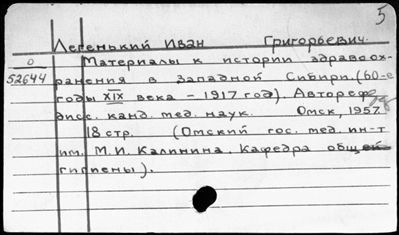 5
Легенький Иван Григорьевич.
О Материалы к истории здравоох-
52644 ранения в Западной Сибири. (60-е
годы XIX века – 1917 год). Автореф.
дисс. канд. мед. наук. Омск, 1957.
18 стр. (Омский гос. мед. ин-т
им. М.И. Калинина. Кафедра общей
гигиены).